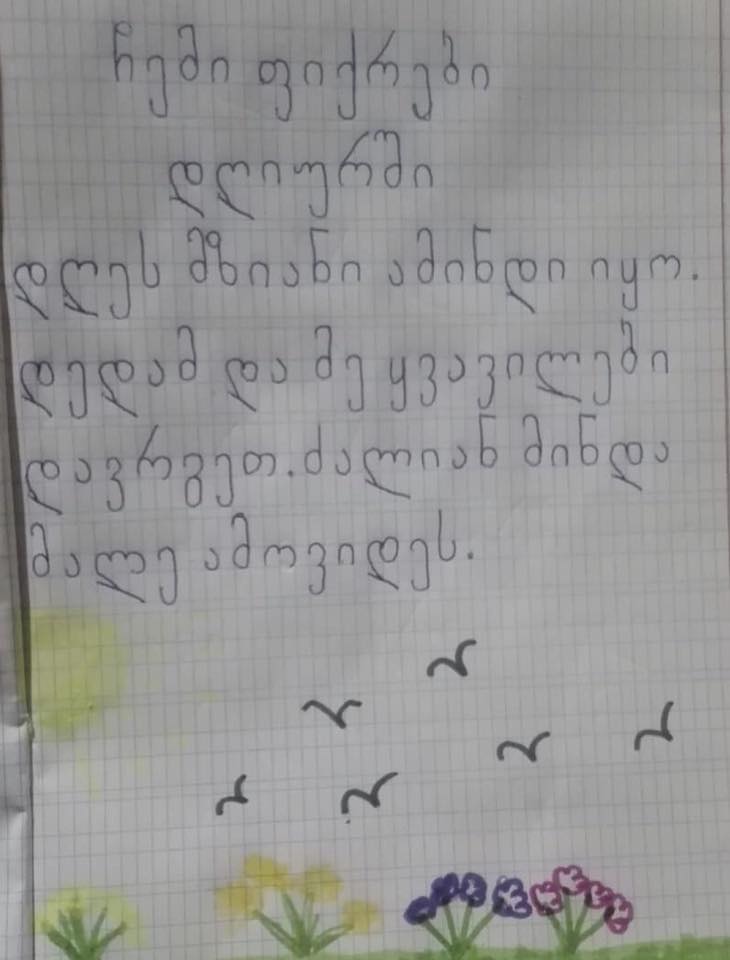 ჩემი ფიქრები
დღიურში
დღეს მზიანი ამინდი იყო.
დედამ და მე ყვავილები
დავრგეთ. ძალიან მინდა
მალე ამოვიდეს.